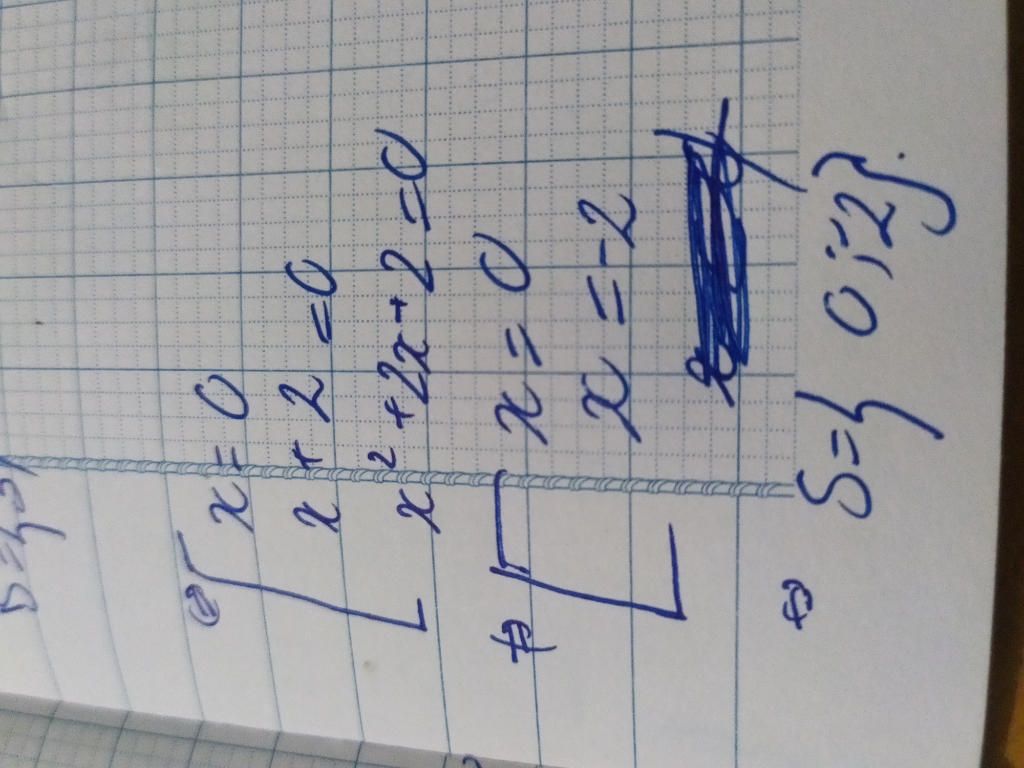 ⇔ [ x = 0
x + 2 = 0
x² + 2x + 2 = 0
⇔ [ x = 0
x = -2
⇔ S = { 0 ; -2 }.